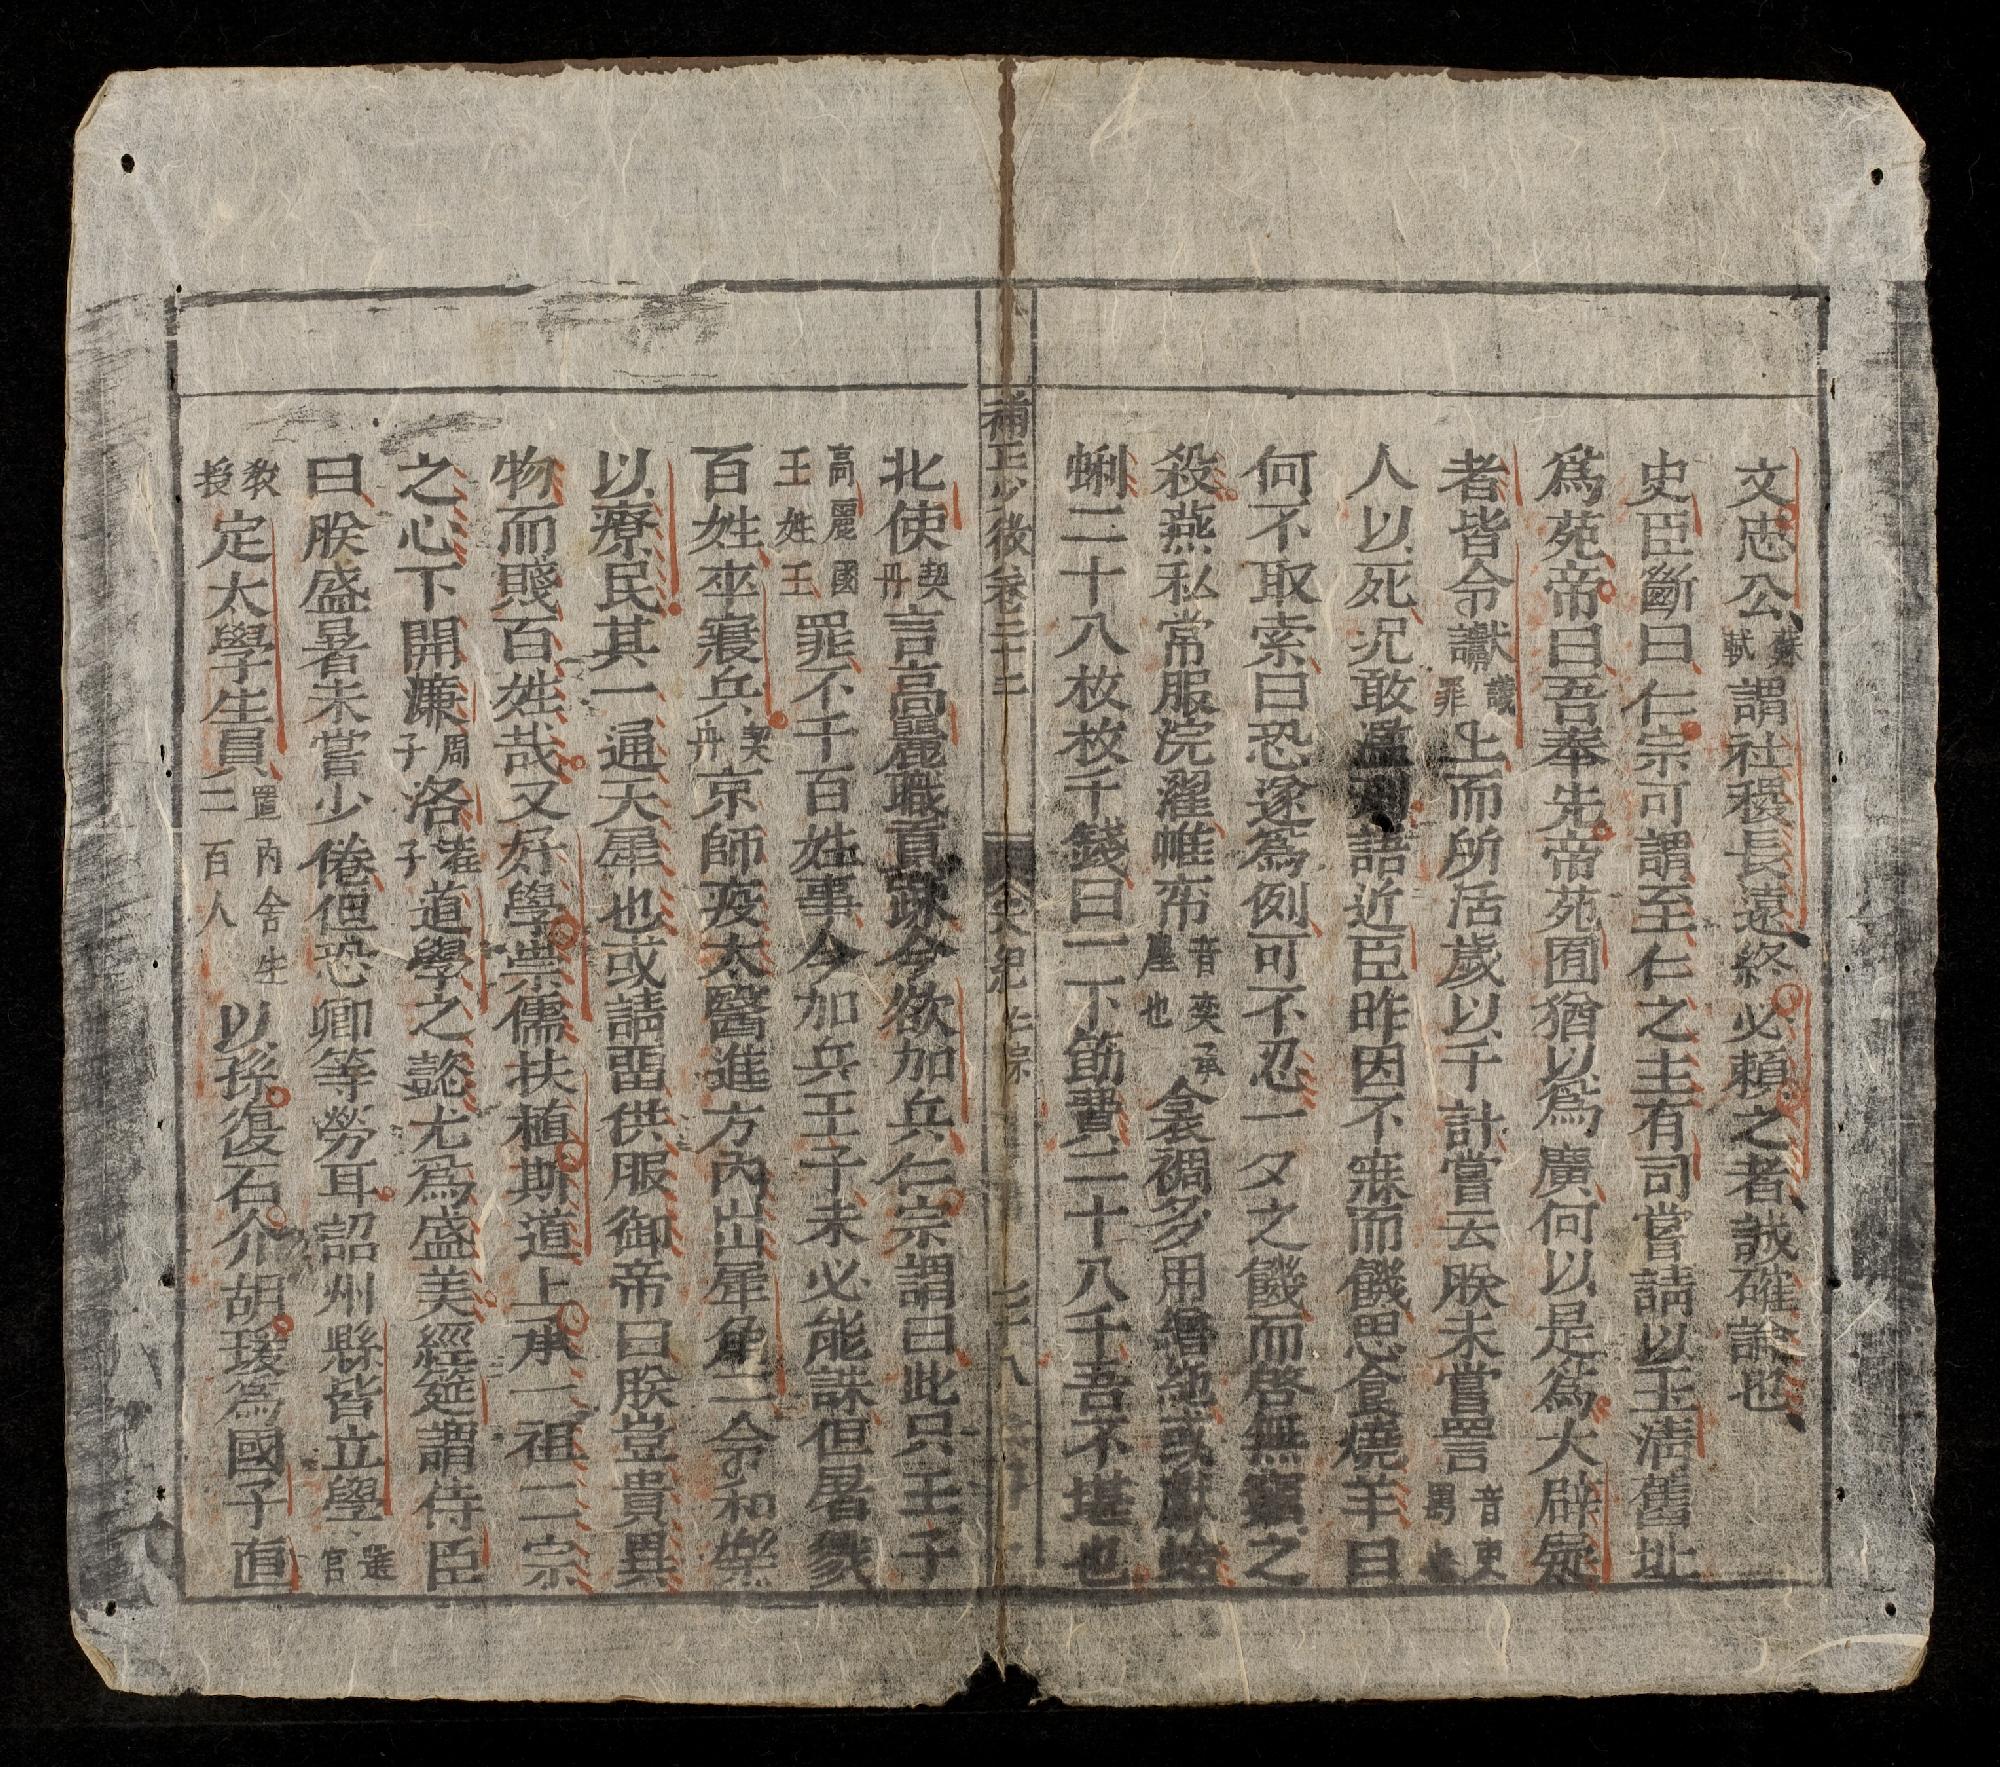 文忠公蘇軾謂社稷長遠終必賴之者誠確論也
史臣斷曰仁宗可謂至仁之主有司嘗請以玉淸舊址
爲苑帝曰吾奉先帝苑囿猶以爲廣何以是爲大辟疑
者皆令讞議罪上而所活歲以千計嘗云朕未嘗詈人以
人以死況敢濫 語近臣昨因不寐而饑思食燒羊曰
何不取索曰恐遂爲例可不忍一夕之饑而啓無窮之
殺燕私常服浣濯帷帟音奕承塵也衾裯多用繒絁或獻蛤
蜊二十八枚枚千錢曰一下筯費二十八千吾不堪也
補正少後卷之十二 宋紀 仁宗 七十八
北使契丹言高麗職貢踈今欲加兵仁宗謂曰此只王子
高麗國王姓王罪不干百姓事今加兵王子未必能誅但屠戮
百姓卒寢兵契丹京師疫太醫進方內出犀角二令和藥
以療民其一通天犀也或請畱供服御帝曰朕豈貴異
物而賤百姓哉又好學崇儒扶植斯道上承一祖二宗
之心下開濂周子洛程子道學之懿尤爲盛美經筵謂侍臣
曰朕盛暑未嘗少倦但恐卿等勞耳詔州縣皆立學選官
敎授定太學生員置內舍生二百人以孫復石介胡瑗爲國子直